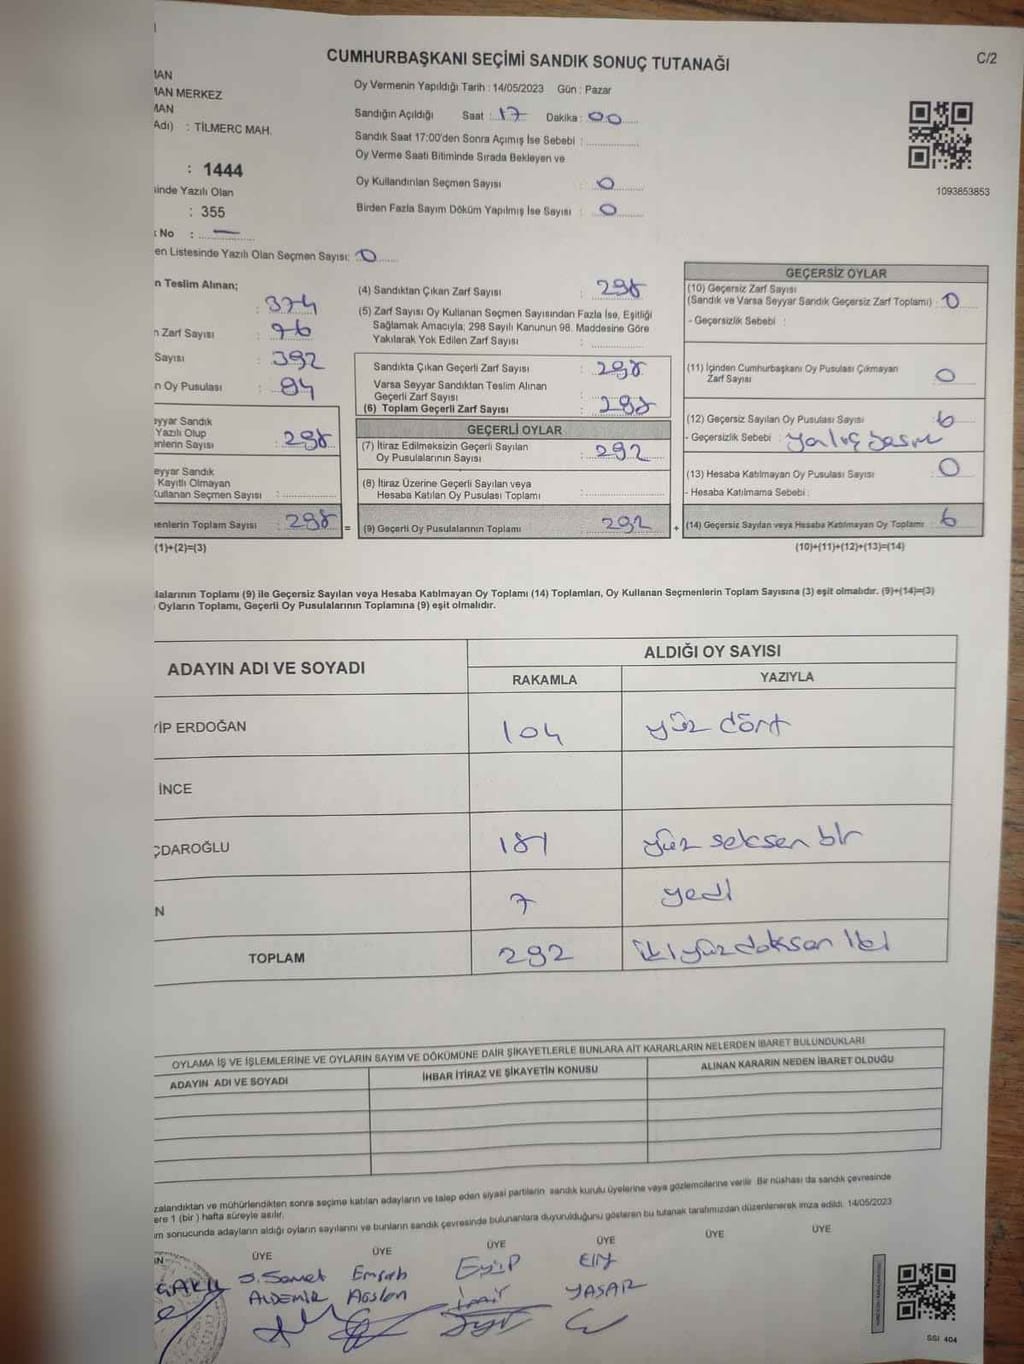 CUMHURBAŞKANI SEÇİMİ SANDIK SONUÇ TUTANAĞI
C/2
MAN MERKEZ
Adı) : TİLMERC MAH.
: 1444
inde Yazılı Olan
: 355
No : —
en Listesinde Yazılı Olan Seçmen Sayısı: 0
Oy Vermenin Yapıldığı Tarih : 14/05/2023 Gün : Pazar
Sandığın Açıldığı Saat : 17 Dakika : 00
Sandık Saat 17:00'den Sonra Açımış İse Sebebi :
Oy Verme Saati Bitiminde Sırada Bekleyen ve
Oy Kullandırılan Seçmen Sayısı : 0
Birden Fazla Sayım Döküm Yapılmış İse Sayısı : 0
1093853853
n Teslim Alınan;
: 374
n Zarf Sayısı : 76
Sayısı : 392
n Oy Pusulası : 94
eyyar Sandık
Yazılı Olup
enlerin Sayısı : 298
eyyar Sandık
Kayıtlı Olmayan
Kullanan Seçmen Sayısı :
enlerin Toplam Sayısı : 298 =
(1)+(2)=(3)
(4) Sandıktan Çıkan Zarf Sayısı : 298
(5) Zarf Sayısı Oy Kullanan Seçmen Sayısından Fazla İse, Eşitliği
Sağlamak Amacıyla; 298 Sayılı Kanunun 98. Maddesine Göre
Yakılarak Yok Edilen Zarf Sayısı :
Sandıkta Çıkan Geçerli Zarf Sayısı : 298
Varsa Seyyar Sandıktan Teslim Alınan
Geçerli Zarf Sayısı :
(6) Toplam Geçerli Zarf Sayısı : 298
GEÇERLİ OYLAR
(7) İtiraz Edilmeksizin Geçerli Sayılan
Oy Pusulalarının Sayısı : 292
(8) İtiraz Üzerine Geçerli Sayılan veya
Hesaba Katılan Oy Pusulası Toplamı :
(9) Geçerli Oy Pusulalarının Toplamı : 292 +
GEÇERSİZ OYLAR
(10) Geçersiz Zarf Sayısı
(Sandık ve Varsa Seyyar Sandık Geçersiz Zarf Toplamı) : 0
- Geçersizlik Sebebi :
(11) İçinden Cumhurbaşkanı Oy Pusulası Çıkmayan
Zarf Sayısı : 0
(12) Geçersiz Sayılan Oy Pusulası Sayısı : 6
- Geçersizlik Sebebi :
(13) Hesaba Katılmayan Oy Pusulası Sayısı : 0
- Hesaba Katılmama Sebebi :
(14) Geçersiz Sayılan veya Hesaba Katılmayan Oy Toplamı : 6
(10)+(11)+(12)+(13)=(14)
lalarının Toplamı (9) ile Geçersiz Sayılan veya Hesaba Katılmayan Oy Toplamı (14) Toplamları, Oy Kullanan Seçmenlerin Toplam Sayısına (3) eşit olmalıdır. (9)+(14)=(3)
Oyların Toplamı, Geçerli Oy Pusulalarının Toplamına (9) eşit olmalıdır.
ADAYIN ADI VE SOYADI
ALDIĞI OY SAYISI
RAKAMLA YAZIYLA
YİP ERDOĞAN 104 yüz dört
İNCE
ÇDAROĞLU 181 yüz seksen bir
N 7 yedi
TOPLAM 292 iki yüz doksan iki
OYLAMA İŞ VE İŞLEMLERİNE VE OYLARIN SAYIM VE DÖKÜMÜNE DAİR ŞİKAYETLERLE BUNLARA AİT KARARLARIN NELERDEN İBARET BULUNDUKLARI
ADAYIN ADI VE SOYADI İHBAR İTİRAZ VE ŞİKAYETİN KONUSU ALINAN KARARIN NEDEN İBARET OLDUĞU
zalandıktan ve mühürlendikten sonra seçime katılan adayların ve talep eden siyasi partilerin sandık kurulu üyelerine veya gözlemcilerine verilir. Bir nüshası da sandık çevresinde
ere 1 (bir) hafta süreyle asılır.
m sonucunda adayların aldığı oyların sayılarını ve bunların sandık çevresinde bulunanlara duyurulduğunu gösteren bu tutanak tarafımızdan düzenlenerek imza edildi. 14/05/2023
ÜYE ÜYE ÜYE ÜYE ÜYE ÜYE
S. Samet Emrah Eyüp Elif
ALDEMİR Aslan YAŞAR
SSI 404